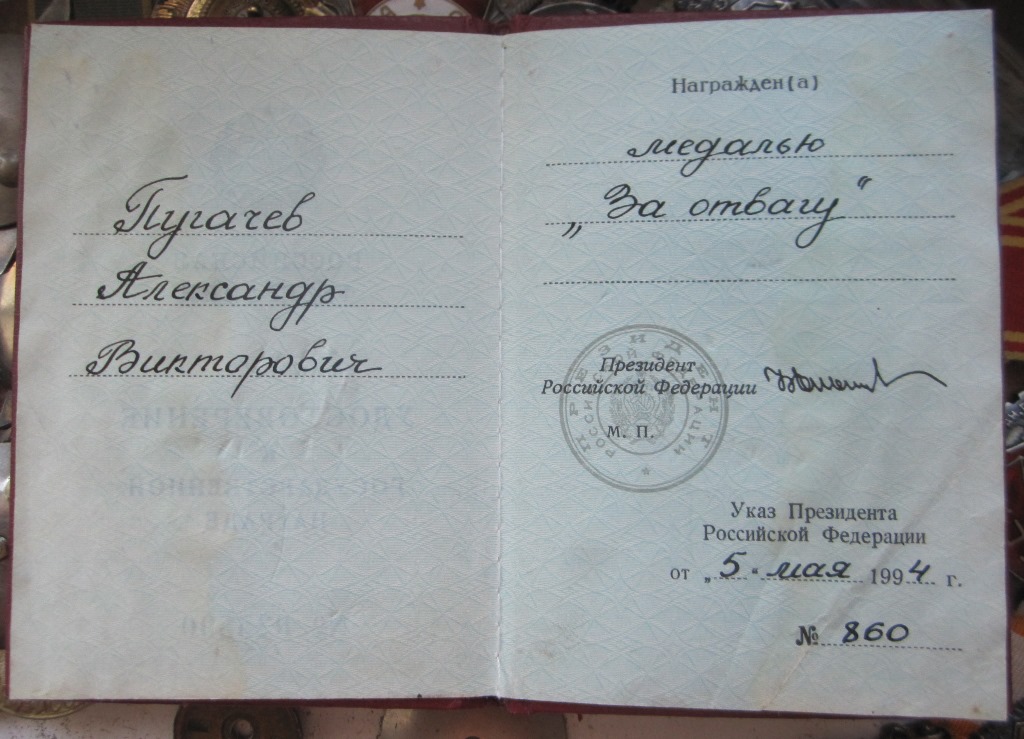 Пугачев
Александр
Викторович
Награжден(а)
медалью
„За отвагу“
Президент
Российской Федерации
М. П.
ПРЕЗИДЕНТ
РОССИЙСКОЙ ФЕДЕРАЦИИ
Указ Президента
Российской Федерации
от „5“ мая 1994 г.
№ 860